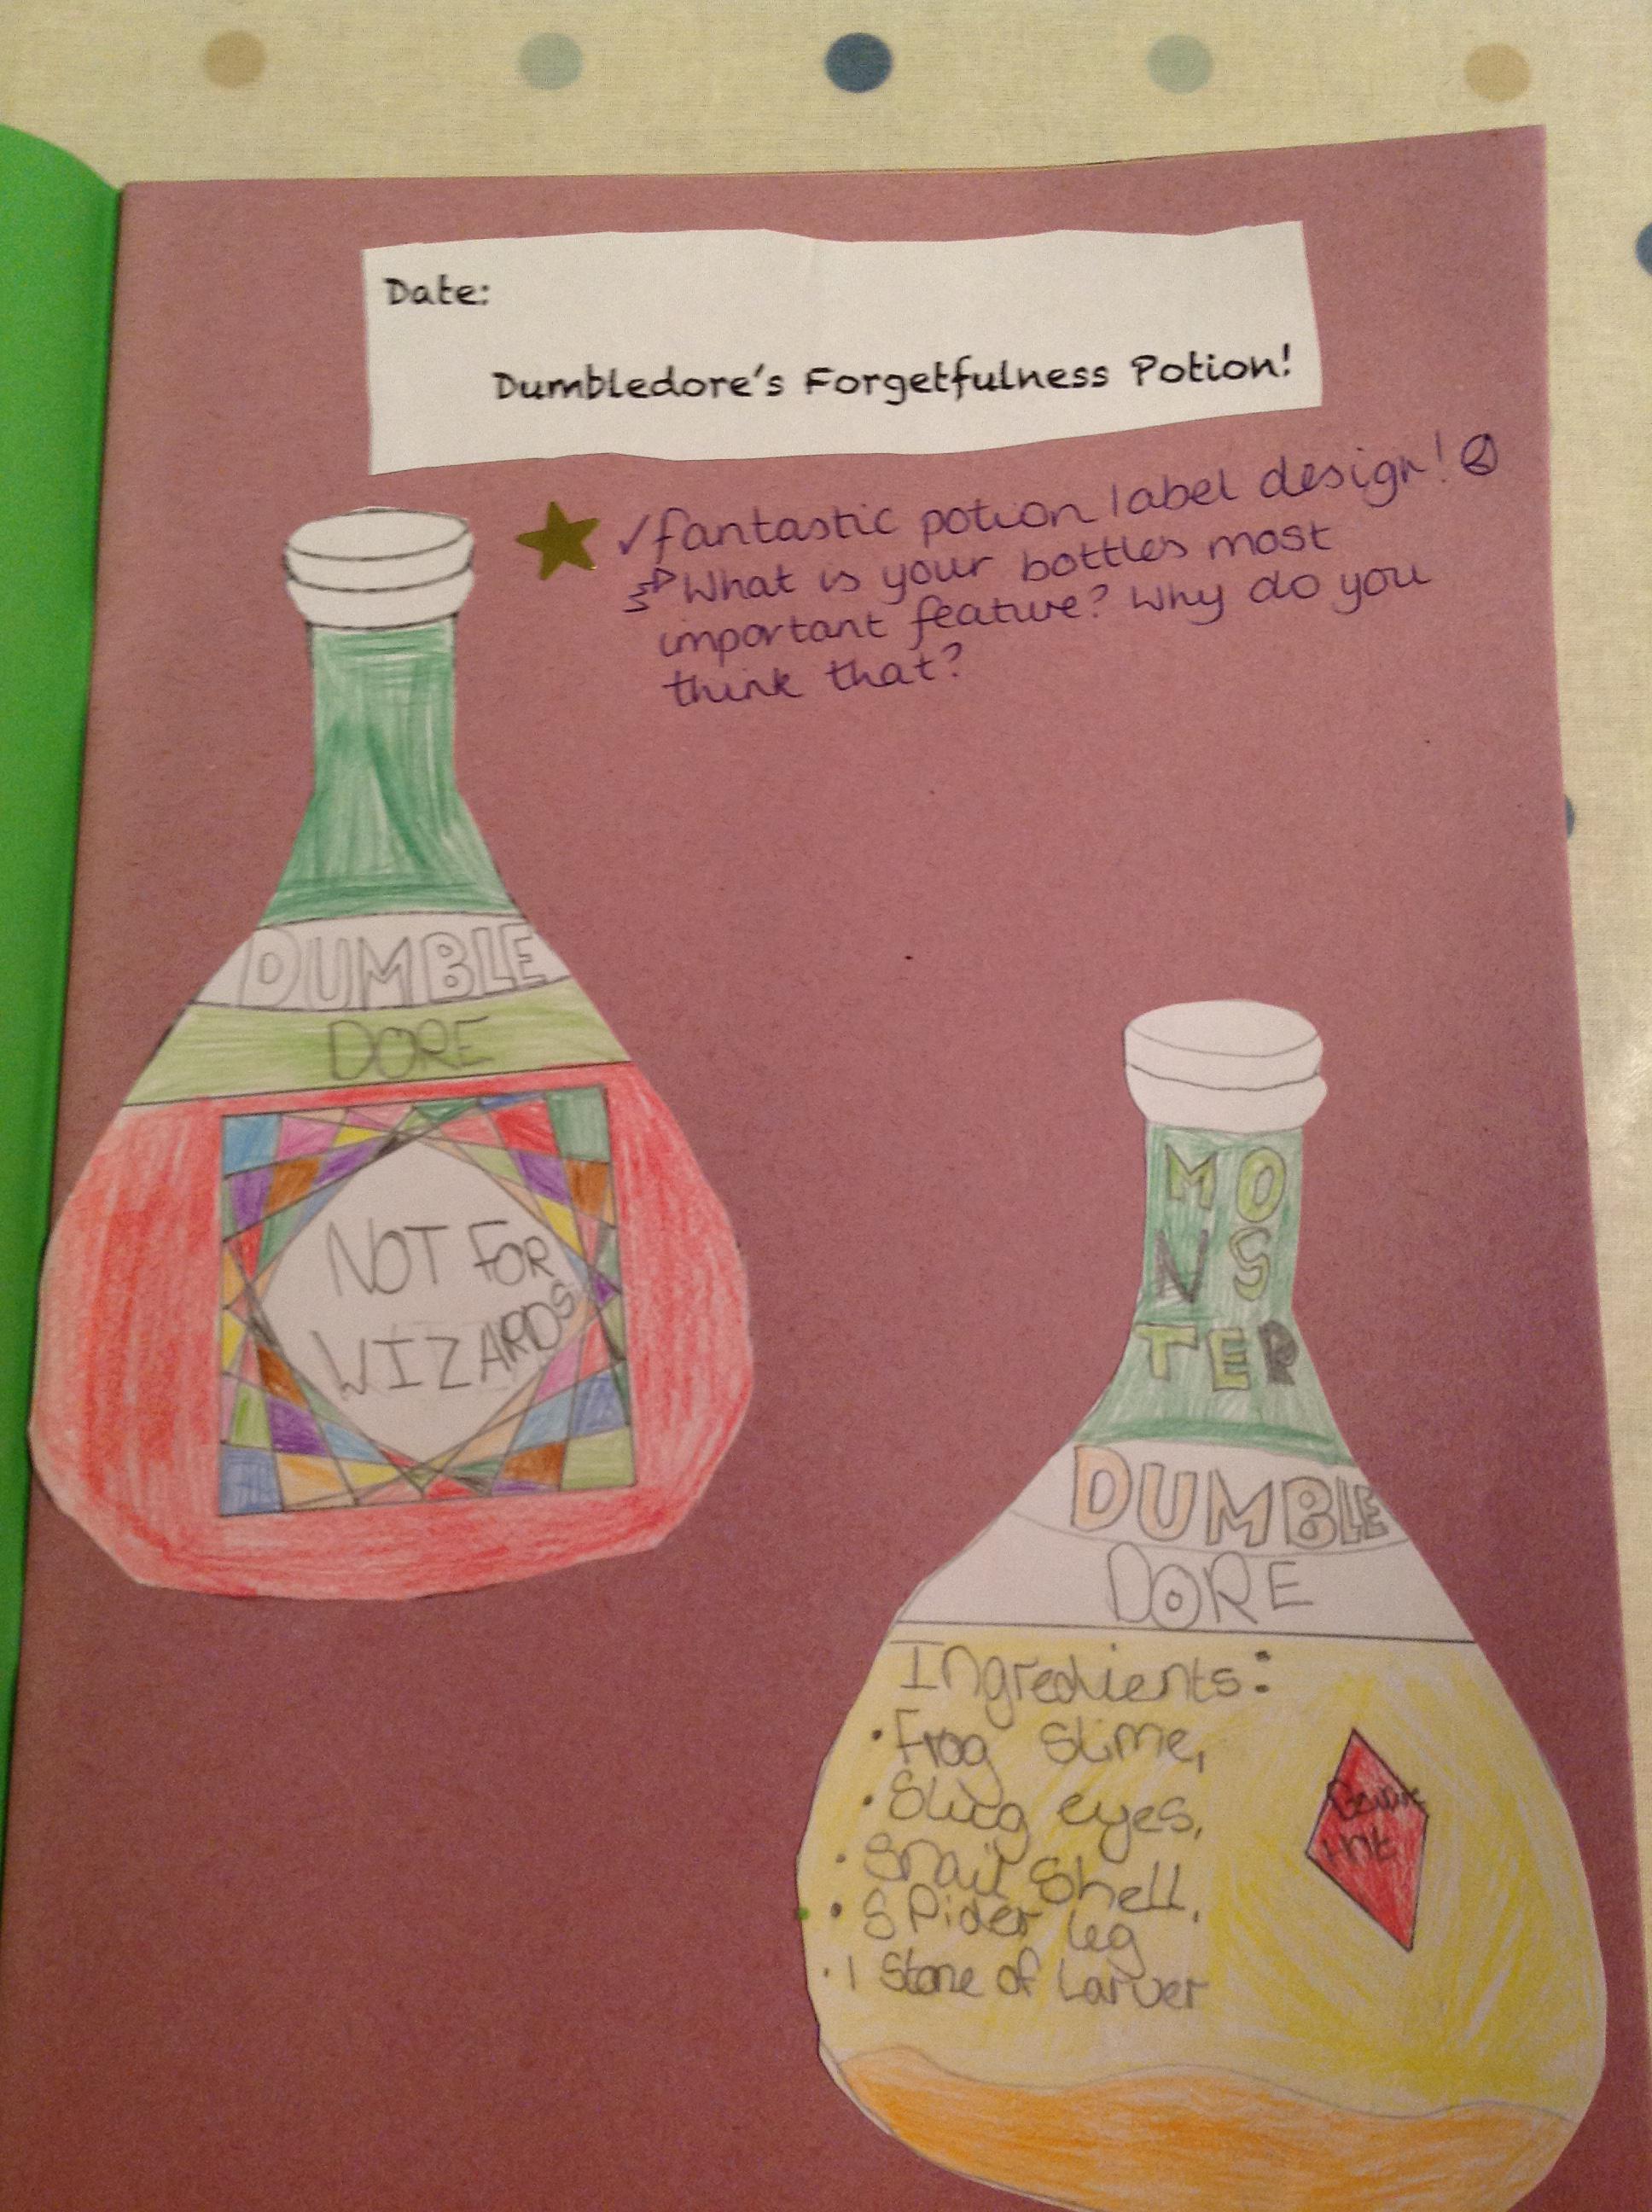 Date:
Dumbledore's Forgetfulness Potion!
✓fantastic potion label design!
What is your bottles most
important feature? Why do you
think that?
DUMBLE
DORE
NOT FOR
WIZARDS
MO
NS
TER
DUMBLE
DORE
Ingredients:
• Frog slime,
• Slug eyes,
• Snail Shell,
• SPider leg
• 1 Stone of Larver
Beware